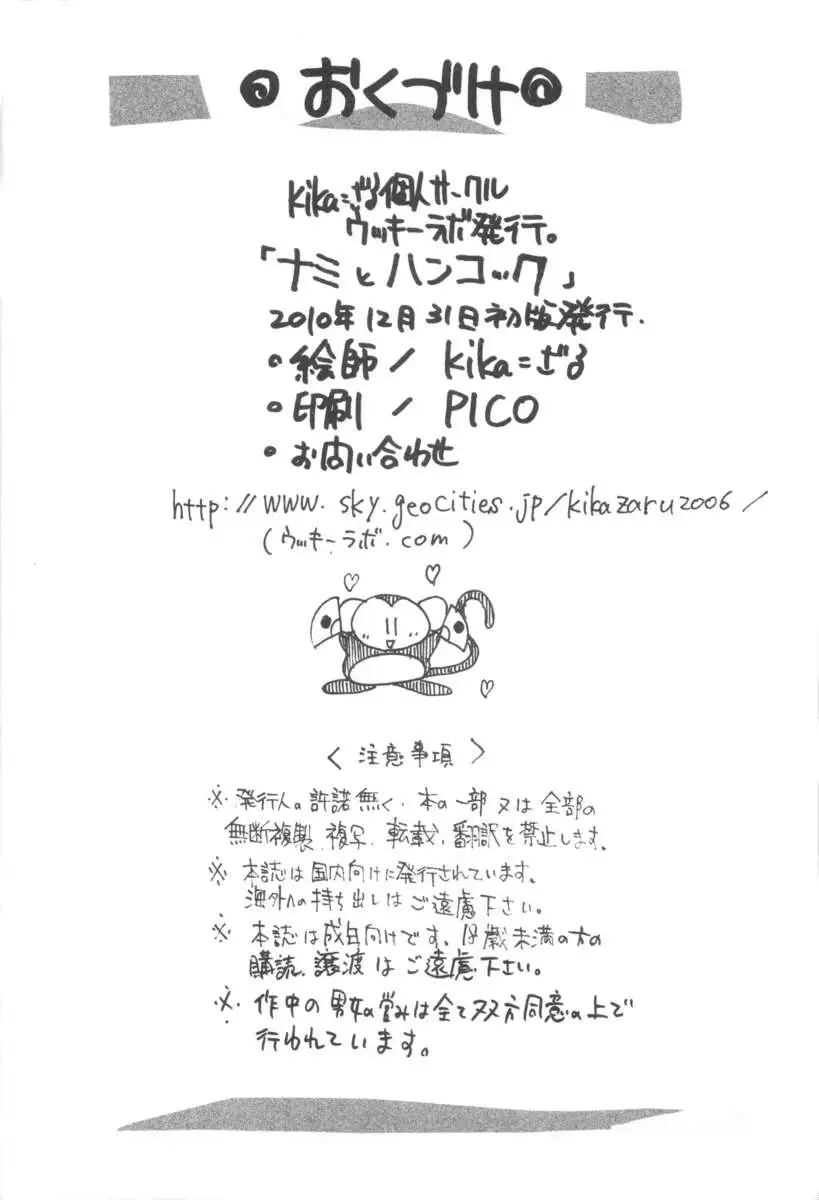 おくづけ
kika=ざる個人サークル
ウッキーラボ発行。
「ナミとハンコック」
2010年12月31日初版発行.
・絵師/kika=ざる
・印刷/PICO
・お問い合わせ
http://www.sky.geocities.jp/kikazaru2006/
(ウッキーラボ.com)
〈注意事項〉
※発行人の許諾無く、本の一部又は全部の
無断複製、複写、転載、翻訳を禁止します。
※本誌は国内向けに発行されています。
海外への持ち出しはご遠慮下さい。
※本誌は成年向けです。18歳未満の方の
購読、譲渡はご遠慮下さい。
※作中の男女の営みは全て双方同意の上で
行われています。